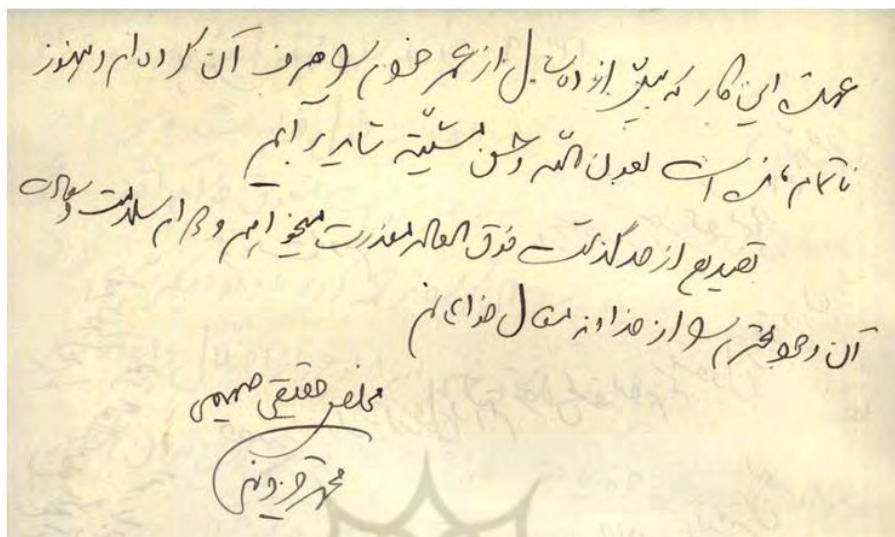 عهدۀ این کار که بیش از ده سال از عمر خود را صرف آن کرده‌ام و هنوز
ناتمام مانده است بعون الله و حسن مشیّته تا برآیم
تصدیع از حد گذشت فوق العاده معذرت میخواهم و دوام سلامت و سعادت
آن وجود محترم را از خداوند متعال خواهانم
مخلص حقیقی صمیمی
محمد قزوینی